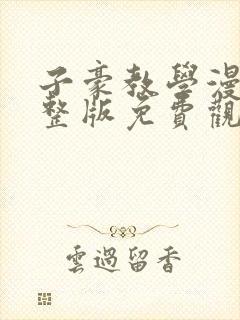 子豪教學漫
整版免費觀
雲過留香